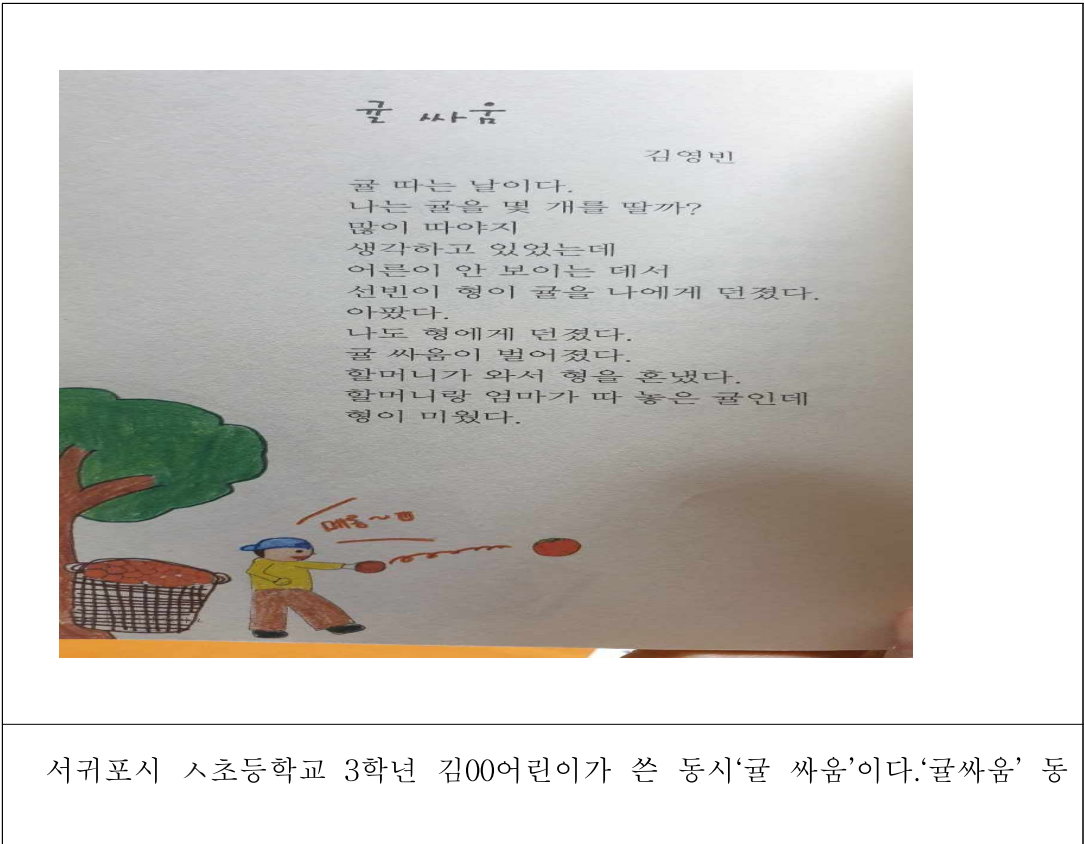 귤 싸움
김영빈
귤 따는 날이다.
나는 귤을 몇 개를 딸까?
많이 따야지
생각하고 있었는데
어른이 안 보이는 데서
선빈이 형이 귤을 나에게 던졌다.
아팠다.
나도 형에게 던졌다.
귤 싸움이 벌어졌다.
할머니가 와서 형을 혼냈다.
할머니랑 엄마가 따 놓은 귤인데
형이 미웠다.
서귀포시 ㅅ초등학교 3학년 김00어린이가 쓴 동시‘귤 싸움’이다.‘귤싸움’ 동